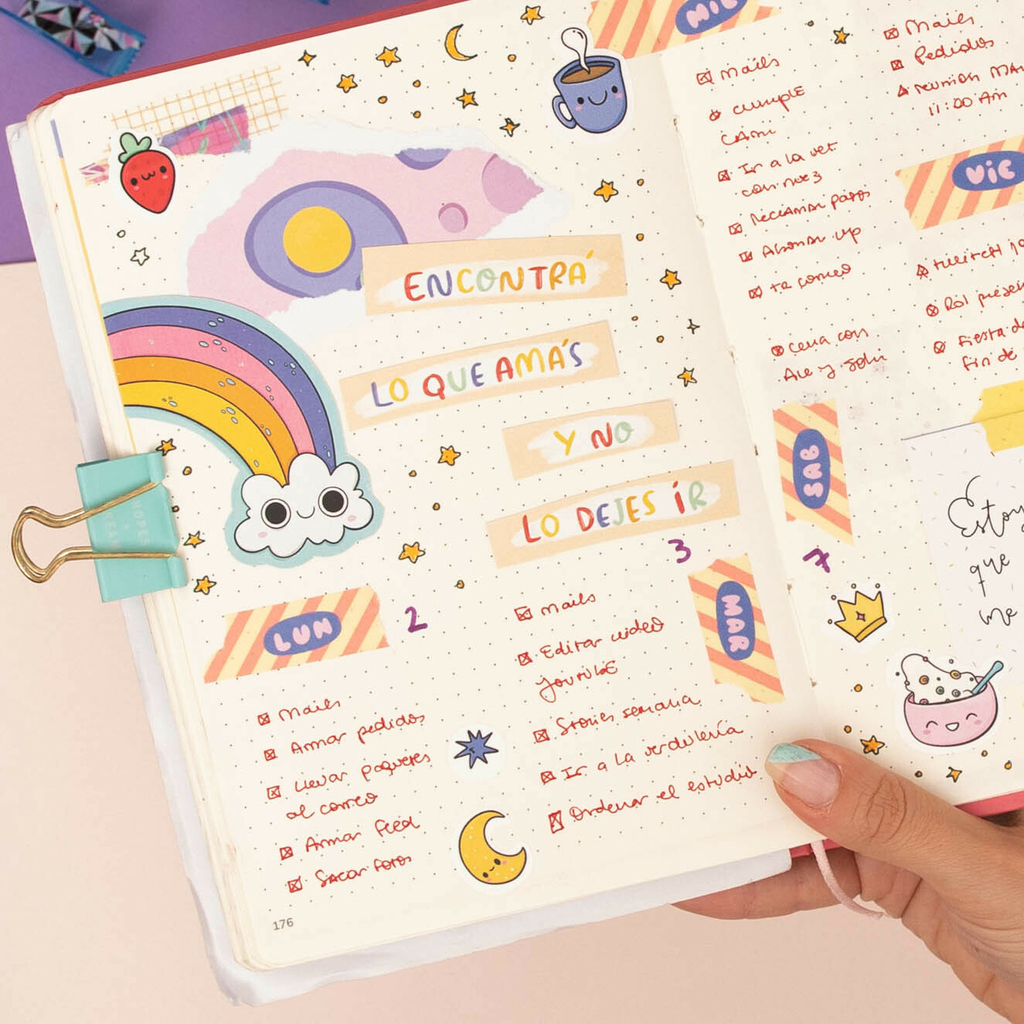 ENCONTRÁ
LO QUE AMÁS
Y NO
LO DEJES ÍR
LUN
2
Mails
Armar pedidos
Llevar paquetes
al correo
Armar feed
Sacar fotos
176
3
MAR
Mails
Editar video
youtube
Stories semana
Ir a la verdulería
Ordenar el estudio
MIE
Mails
cumple
Cami
Ir a la vet
con
Reclamar
Ahorrar
Cena con
Ale y
Mails
Pedidos
reunion
11:00 Am
VIE
Rol
Fiesta de
fin de
SAB
7
Estoy
que
me